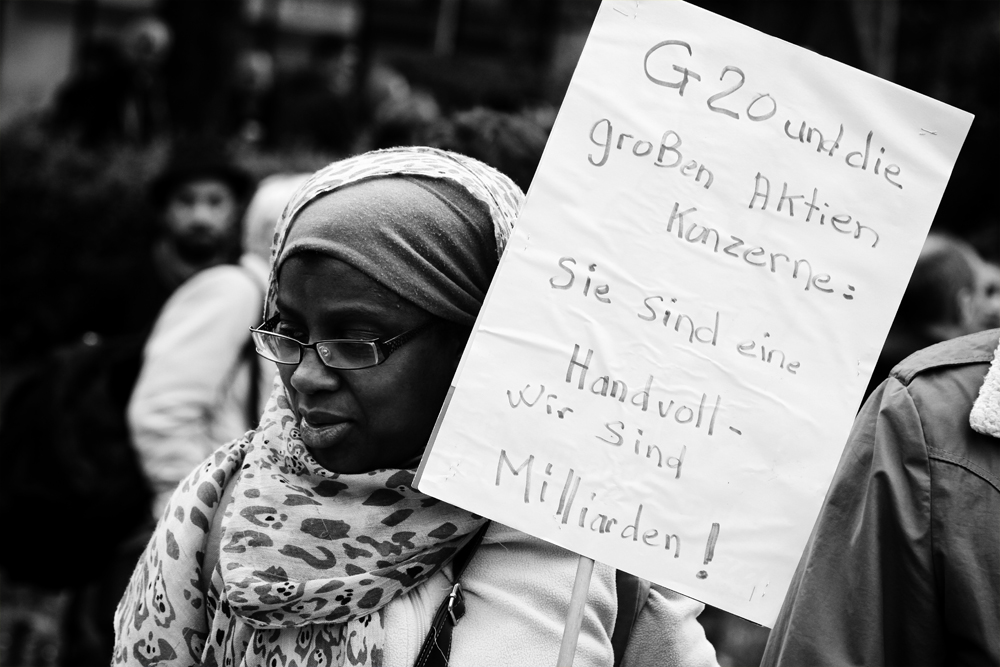 G20 und die
großen Aktien
Konzerne:
Sie sind eine
Handvoll-
wir sind
Milliarden!